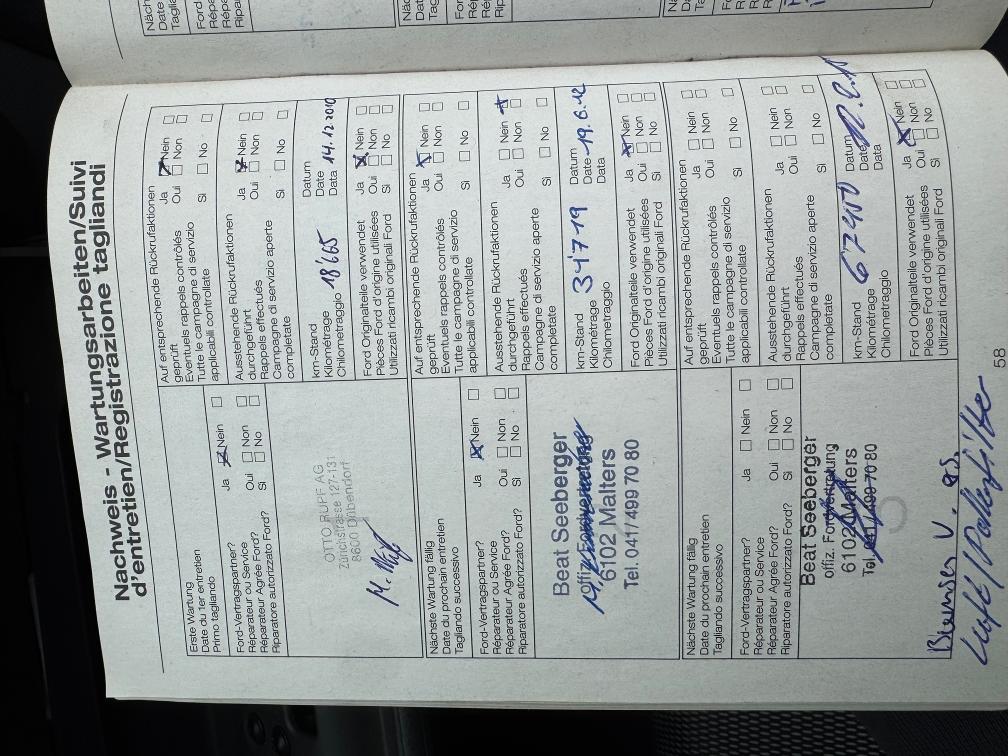 Nachweis - Wartungsarbeiten/Suivi
d'entretien/Registrazione tagliandi
Erste Wartung
Date du 1er entretien
Primo tagliando
Ford-Vertragspartner? Ja Nein
Réparateur ou Service
Réparateur Agrée Ford? Oui Non
Riparatore autorizzato Ford? Si No
OTTO RUPF AG
Zürichstrasse 127-131
8600 Dübendorf
Auf entsprechende Rückrufaktionen
geprüft Ja Nein
Eventuels rappels contrôlés Oui Non
Tutte le campagne di servizio
applicabili controllate Si No
Ausstehende Rückrufaktionen
durchgeführt Ja Nein
Rappels effectués Oui Non
Campagne di servizio aperte
completate Si No
km-Stand Datum
Kilométrage 18'665 Date
Chilometraggio Data 14.12.2010
Ford Originalteile verwendet Ja Nein
Pièces Ford d'origine utilisées Oui Non
Utilizzati ricambi originali Ford Si No
Nächste Wartung fällig
Date du prochain entretien
Tagliando successivo
Ford-Vertragspartner? Ja Nein
Réparateur ou Service
Réparateur Agrée Ford? Oui Non
Riparatore autorizzato Ford? Si No
Beat Seeberger
offiz. Fordvertretung
6102 Malters
Tel. 041 / 499 70 80
Auf entsprechende Rückrufaktionen
geprüft Ja
Eventuels rappels contrôlés Oui Non
Tutte le campagne di servizio
applicabili controllate Si No
Ausstehende Rückrufaktionen
durchgeführt Ja Nein
Rappels effectués Oui Non
Campagne di servizio aperte
completate Si No
km-Stand Datum
Kilométrage 34'719 Date 19.6.12
Chilometraggio Data
Ford Originalteile verwendet Ja Nein
Pièces Ford d'origine utilisées Oui Non
Utilizzati ricambi originali Ford Si No
Nächste Wartung fällig
Date du prochain entretien
Tagliando successivo
Ford-Vertragspartner? Ja Nein
Réparateur ou Service
Réparateur Agrée Ford? Oui Non
Riparatore autorizzato Ford? Si No
Beat Seeberger
offiz. Fordvertretung
6102 Malters
Tel. 041 / 499 70 80
Auf entsprechende Rückrufaktionen
geprüft Ja Nein
Eventuels rappels contrôlés Oui Non
Tutte le campagne di servizio
applicabili controllate Si No
Ausstehende Rückrufaktionen
durchgeführt Ja Nein
Rappels effectués Oui Non
Campagne di servizio aperte
completate Si No
km-Stand Datum
Kilométrage 67400 Date
Chilometraggio Data
Ford Originalteile verwendet Ja Nein
Pièces Ford d'origine utilisées Oui Non
Utilizzati ricambi originali Ford Si No
Bremsen V.
Luft/Pollenfilter
58